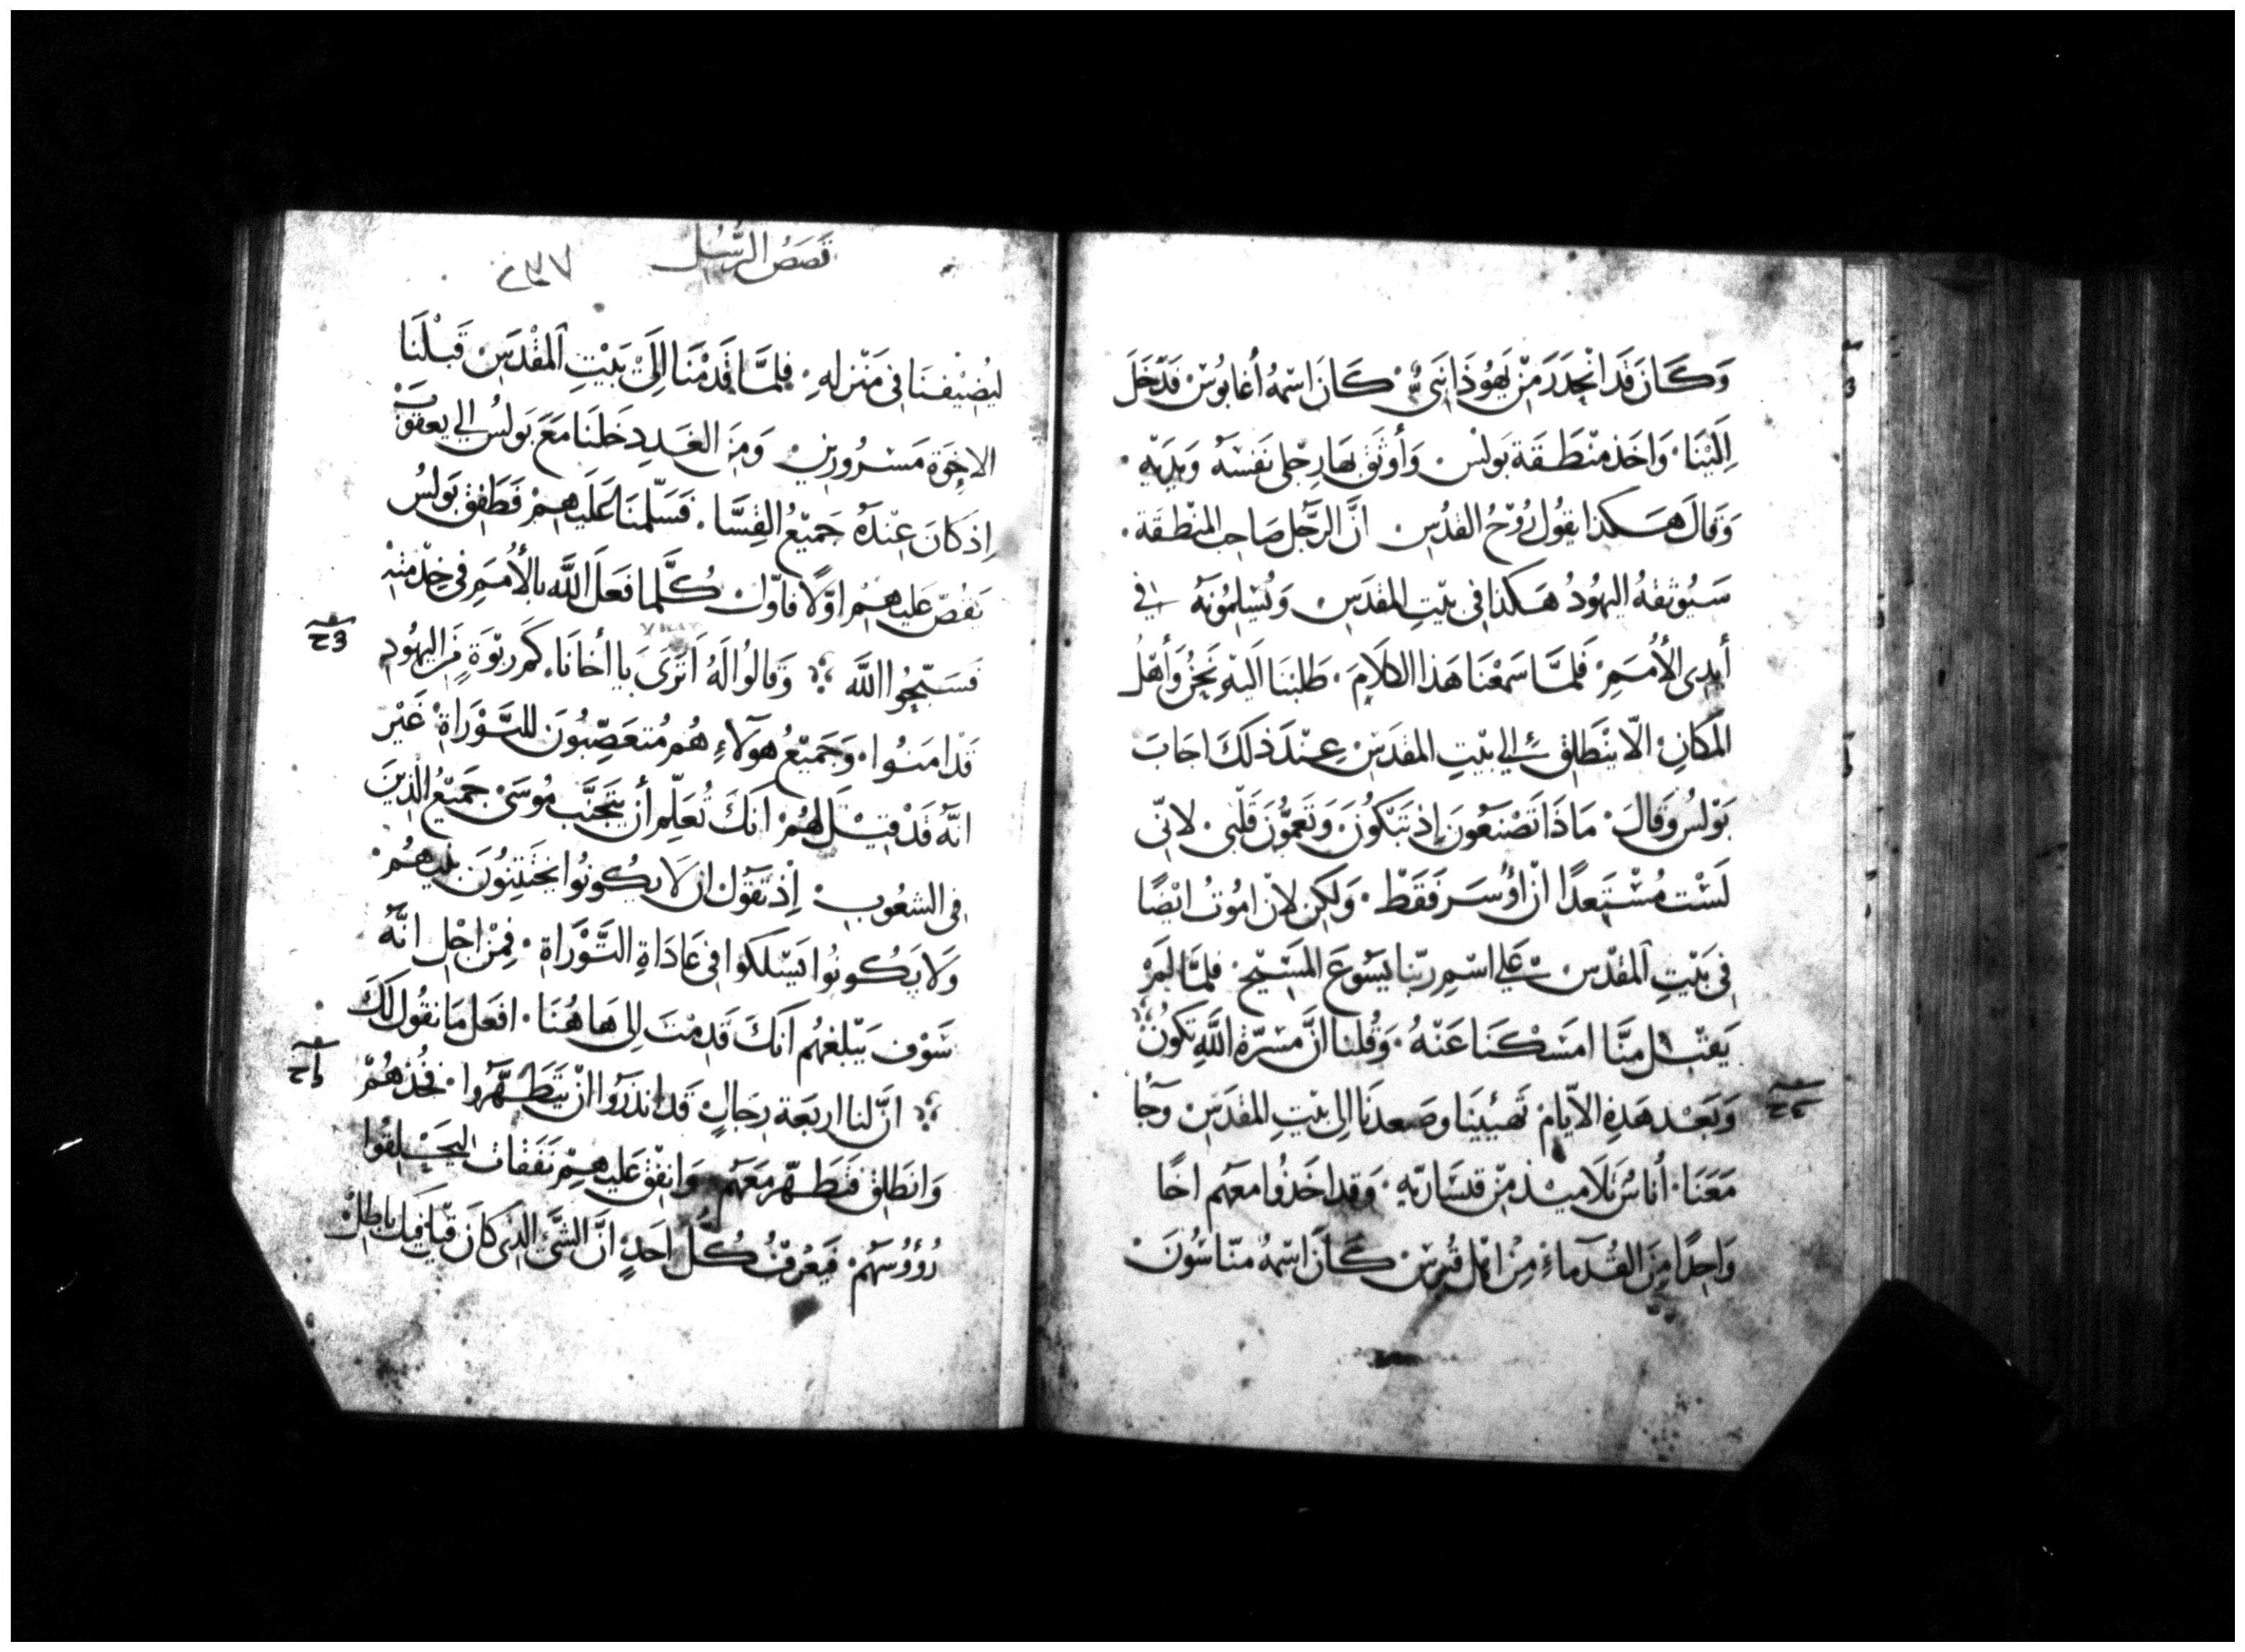 وَكَانَ قَد انْحَدَرَ مِنْ يَهُوذَا نَبِيٌّ · كَانَ اسْمُهُ أغابُوسْ فَدَخَلَ
اِلَيْنَا · وَاخَذ مِنْطَقَة بَولسْ · وَأوثَقَ بهَا رِجْلى نَفسَهُ وَيَديْهِ ·
وَقالَ هَكذا يَقُول رُوْحُ القدُسِ انَّ الرَّجُل صَاحِب المِنْطقَة ·
سَيُوثِقهُ اليَهُودُ هَكذا فى بيْتِ المقدَسِ وَيُسْلِمُونَهُ فى
أيدِى الأُمَمِ · فَلَمَّا سَمْعْنَا هَذا الكَلَامَ · طَلبْنَا اليْهِ نَحْنُ وَأهْلُ
المَكَانِ الّا يَنْطَلِق إلى بيْتِ المقدَسِ عِنْدَ ذلكَ اجَابَ
بَوْلسُ وَقَالَ · مَاذَا تَصْنَعُونَ إذ تَبْكُونَ · وَتَغمُّونَ قَلْبى · لانّى
لَسْت مُسْتَبعدًا انْ اؤسَر فَقَطْ · وَلَكِن لانْ امُوتُ ايْضًا
فى بَيْتِ المقْدسِ عَلى اسْمِ ربّنا يَسُوعَ المَسيْح · فلمَّا لَمْ
يَقبْل مِنَّا امسَكنَا عَنْهُ · وَقُلنا انَّ مَسَرّة اللَّهِ تكونُ
وَبَعْد هَذِهِ الايّام تَهيّئْنَا وصَعدنَا الى بيْتِ المقدَسِ وَجَاء
مَعَنَا · أُناسُ تلَاميْذ مِنْ قيسَاريّهِ · وَقد اخَذوا معَهُم اخًا
وَاحِدًا مِنَ القُدمَاءِ مِنْ اهْل قُبرسْ كَانَ اسْمهُ منّاسُونَ
قَصَصُ الرُّسُل
ليُضِيْفنَا فى مَنْزِلهِ · فلمَّا قدمْنَا إلَى بَيْتِ المقْدَسْ قَبلْنَا
الإخوَة مَسْرُورينَ وَمِنَ الغَد دِخَلنَا مَعَ بَولسُ الى يعقوُبْ
إذ كانَ عِنْدَهُ جَميْعُ القِسَّا · فَسَلّمنَا عَلَيهِمْ فَطَفِقَ بَولسُ
يَقصّ عَليهمُ اوَّلًا فاوّل كُلَّما فَعَلَ اللَّه بالأُمَم فى خِدْمَتِهِ
فَسَبّحُوا اللَّهَ وَقَالُوا لَهُ اتَرَى يا اخَانَا كَم رَبْوَةٍ مِنَ اليهُودِ
قَد امَنُوا · وَجَميْعُ هَولاءِ هُم مُتعَصِّبُونَ للتَّوْرَاةِ غَيْرَ
انّهُ قَدْ قيْلَ لهُمْ انّكَ تُعَلِّم أنْ يَتَجَنَّب مُوسَى جَميْعُ الّذينَ
فى الشعُوبِ إذ تَقولُ ان لَا يكونُوا يَخْتِتنُونَ بَنيْهُمْ ·
وَلَا يَكُونُوا يَسْلكوا فى عَادَاةِ التَّوْرَاةِ · فمِنْ اجْلِ انَّهُ
سَوْف يَبْلغهُم انّكَ قَدِمْتَ الى هَاهُنَا · افعَل مَا نقُول لَكَ
انّ لنا اربَعَة رِجَالٍ قَد انذَرُوا انْ يَتَطَهّرُوا · فَخُذهُمْ
وَانطَلِق فَتَطَهّر مَعَهُمْ · وَانفِقْ عَليهِمْ نَفَقَات ليَحْلِقُوا
رُؤوُسَهُمْ · فيَعْرِفُ كُلّ احَدٍ انَّ الشّئَ الذى كانَ قيْل فيْكَ باطِلْ